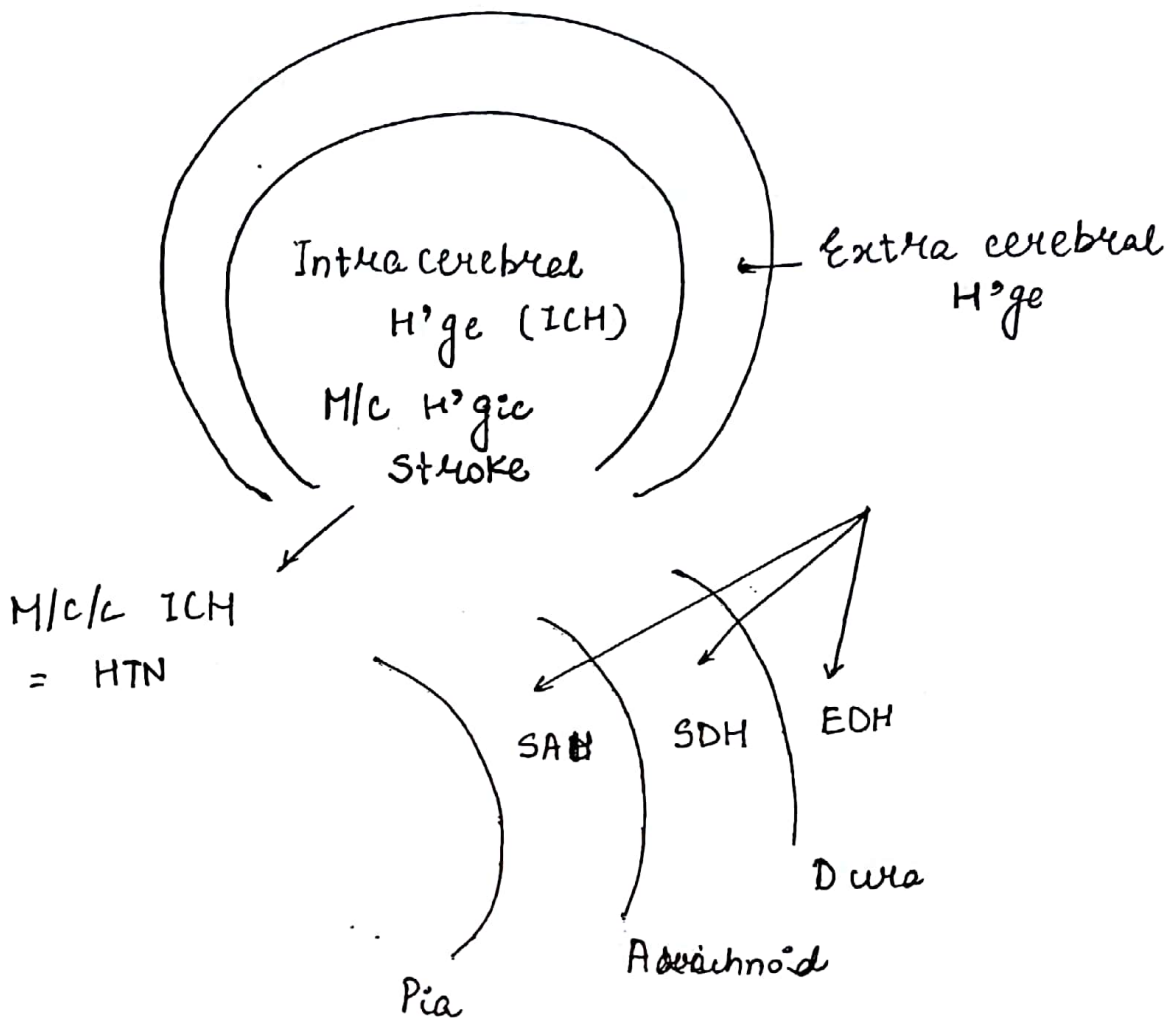 Intracerebral
H'ge (ICH)
M/c H'gic
stroke
Extra cerebral
H'ge
M/c/c ICH
= HTN
SAH
SDH
EDH
Dura
Arachnoid
Pia